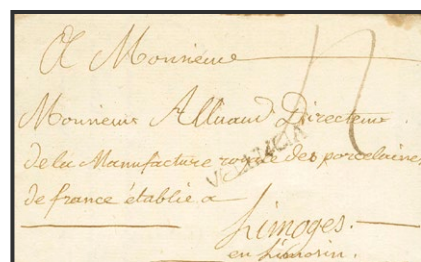 A Monsieur
Monsieur Alluaud Directeur
de la Manufacture royale des porcelaines
de france établie a
Limoges.
en Limosin.